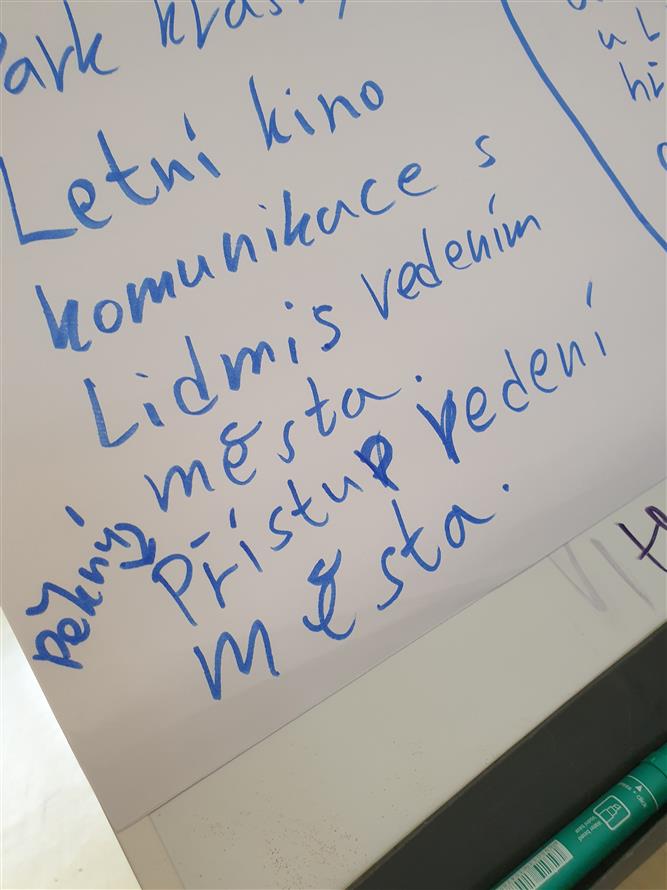 Park krás
Letní kino
komunikace s
Lidmi s vedením
města.
pěkný Přístup vedení
města.
u L